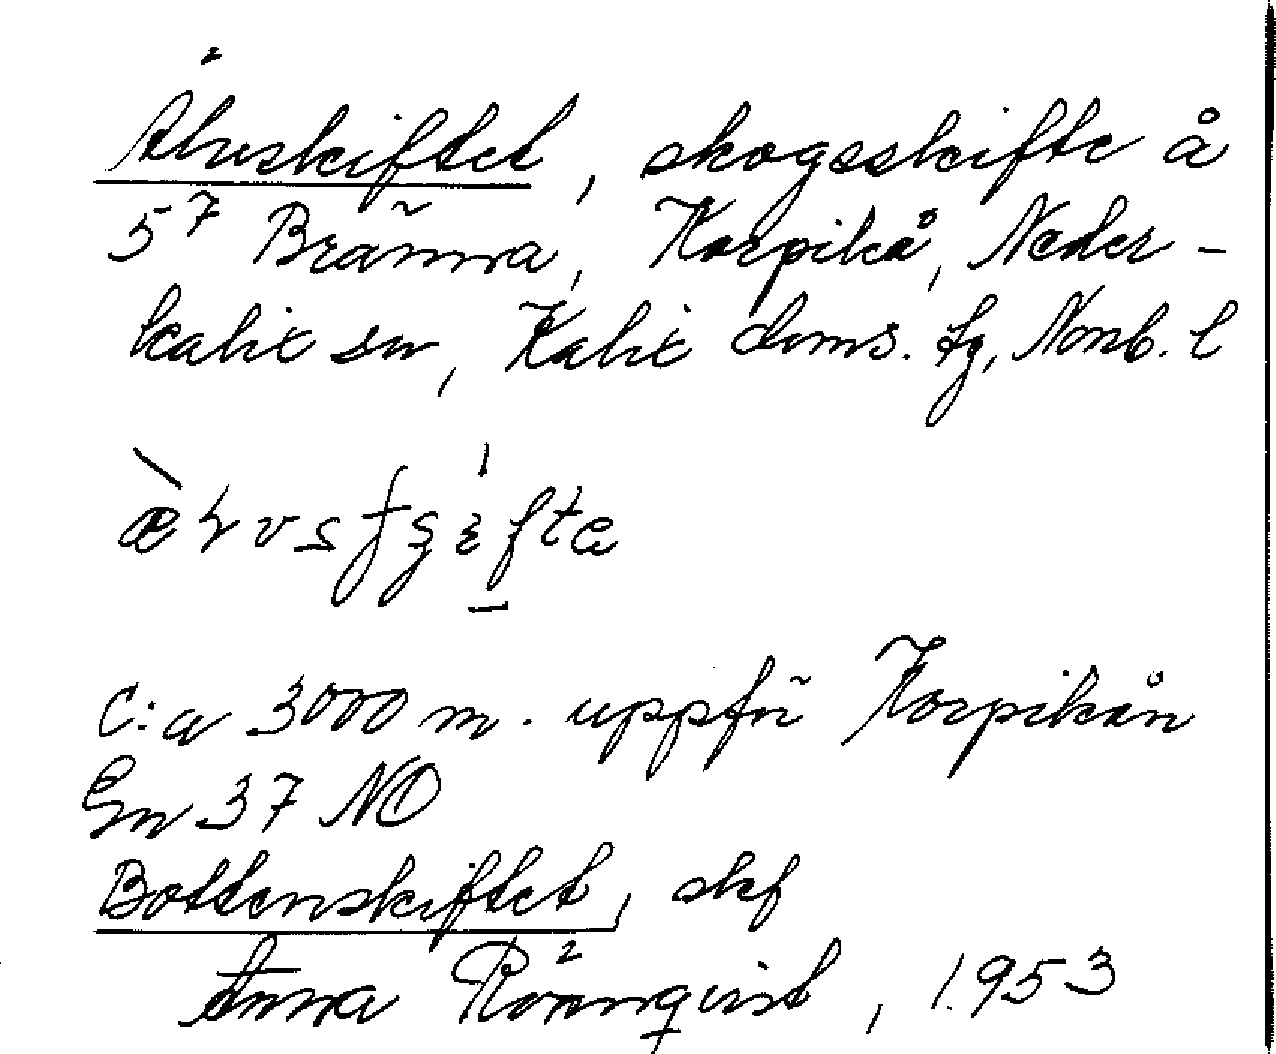 Åhuskiftet, skogsskifte å
5⁷ Bränna, Korpikå, Neder-
kalix sn, Kalix doms. fg, Norrb. l
C:a 3000 m. uppför Korpikån
Gn 37 NO
Bottenskiftet, skf
Anna Rönnqvist, 1953